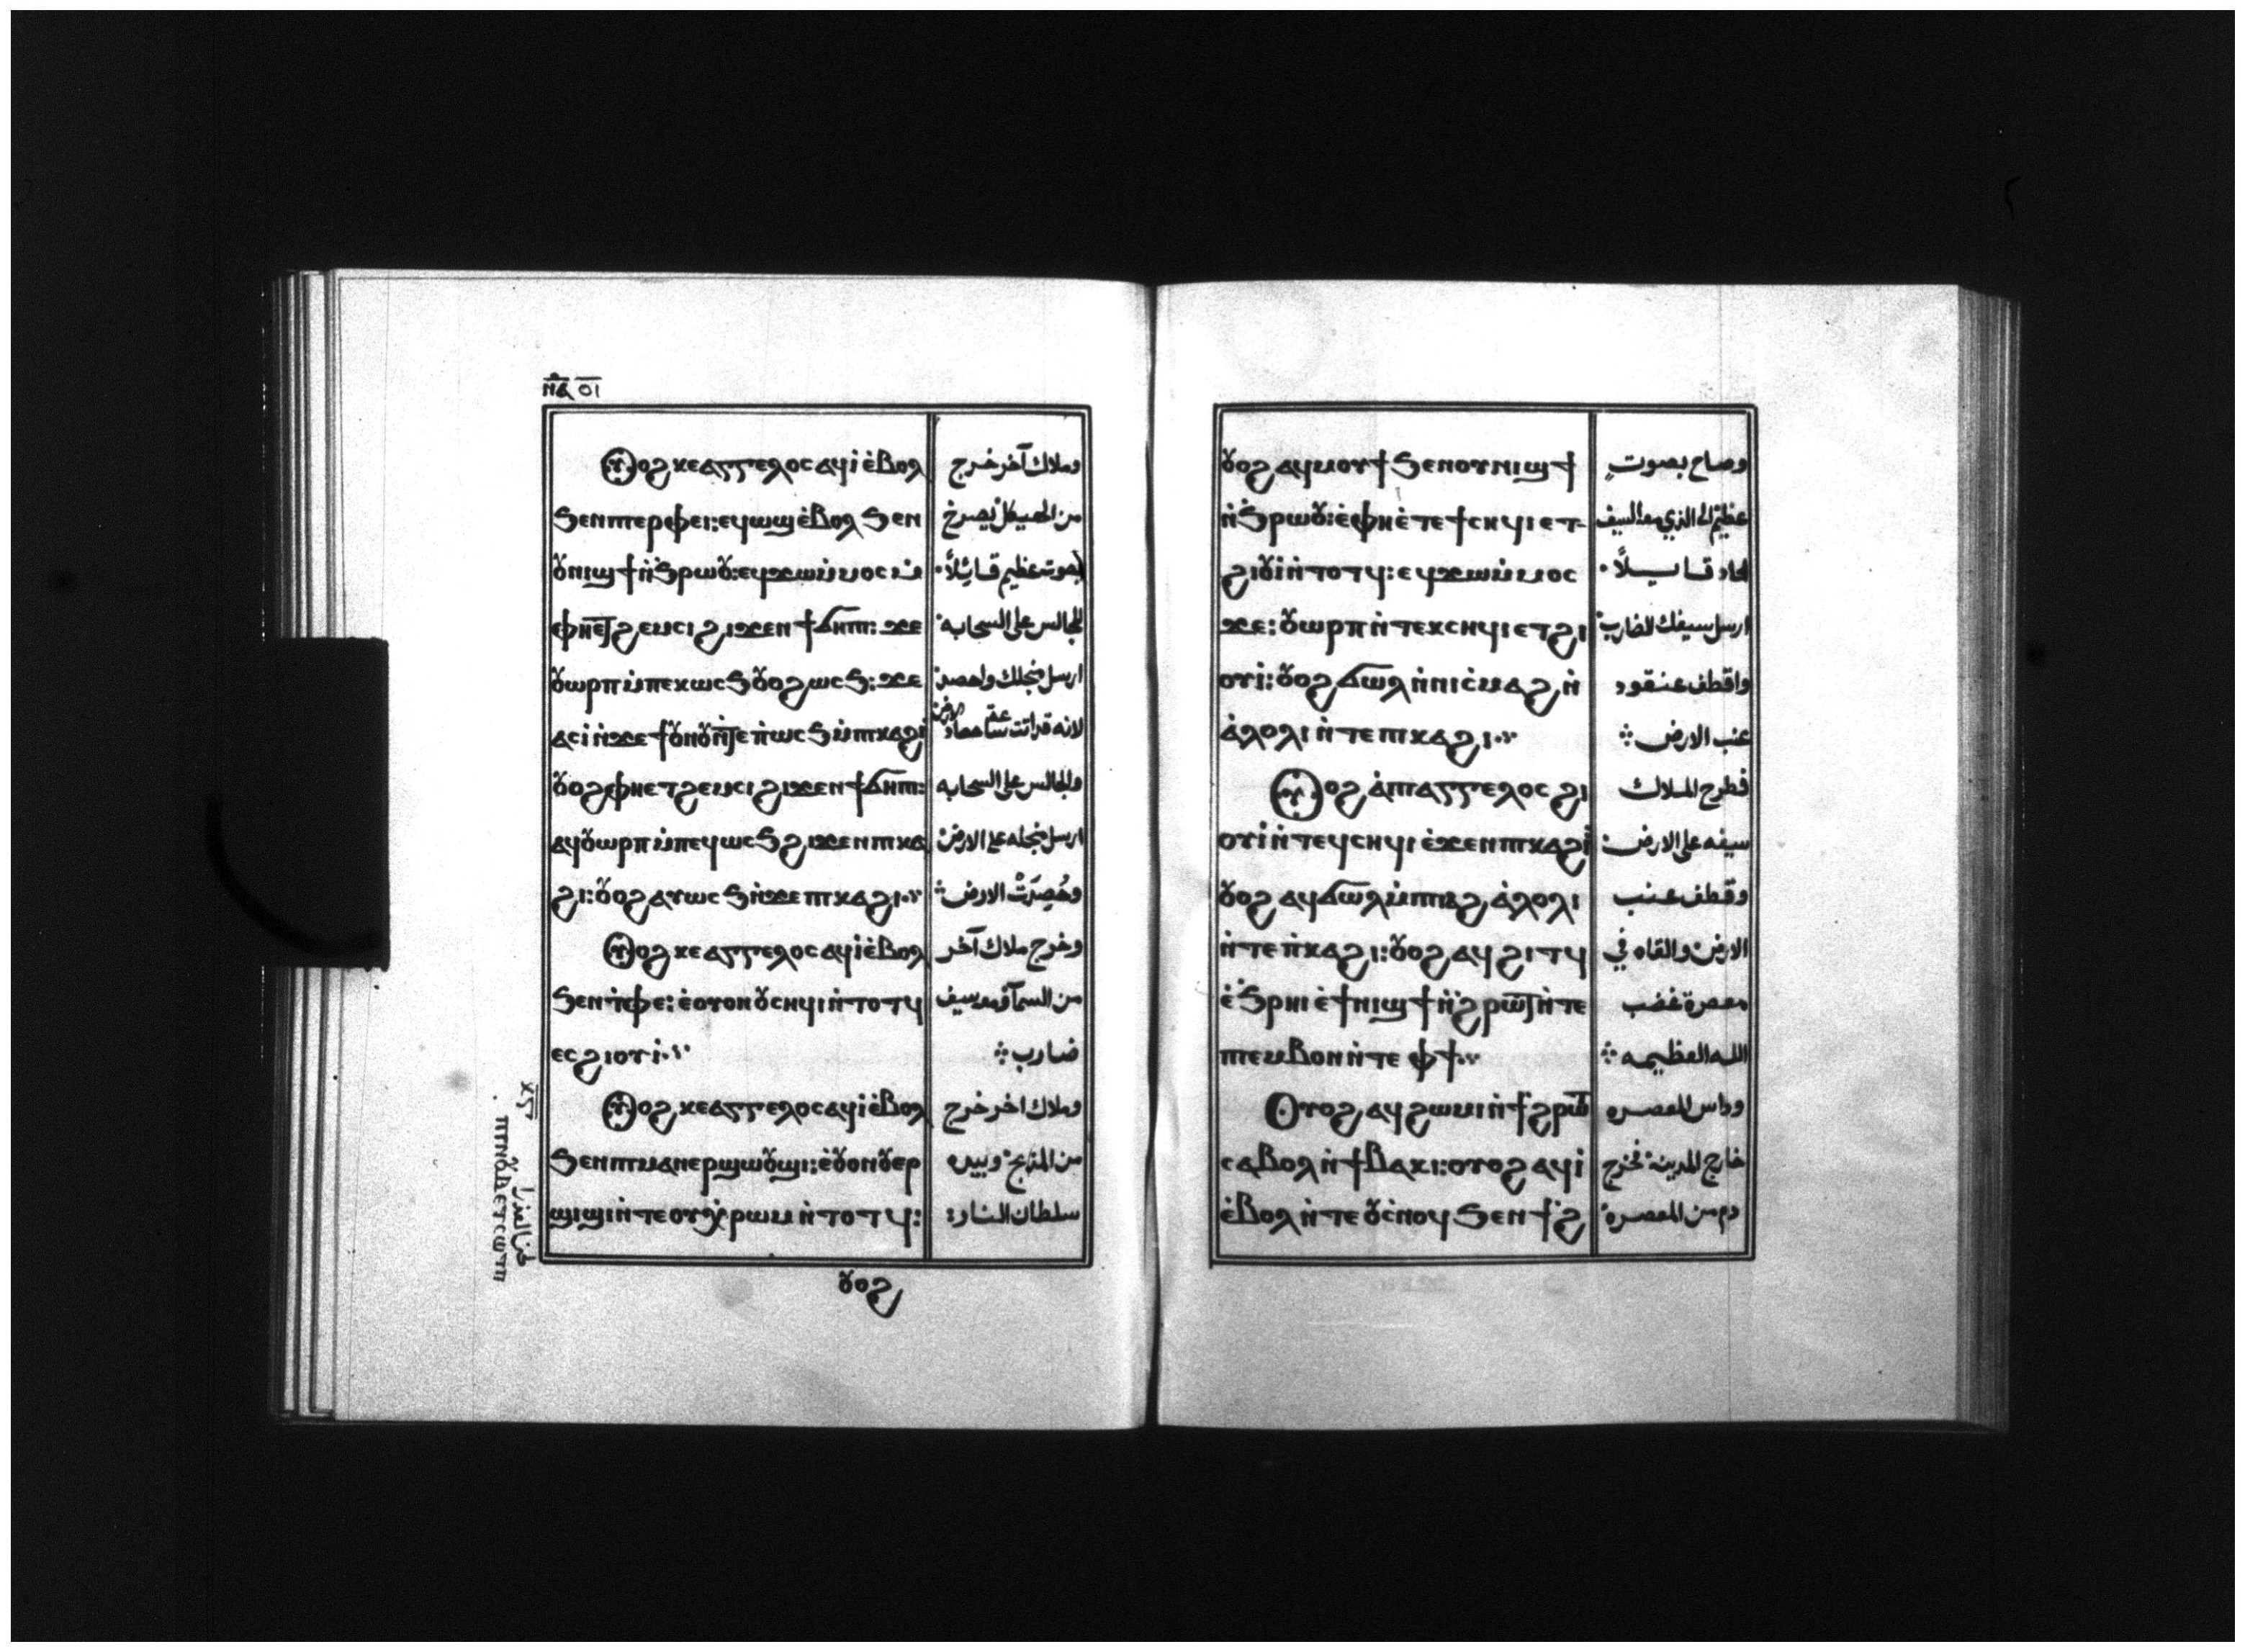 ⲛⲁ̅ ο̅ι̅
Ⲟⲩⲟϩ ⲕⲉⲁⲅⲅⲉⲗⲟⲥ ⲁϥⲓ̀ ⲉ̀ⲃⲟⲗ وملاك آخر خرج
ϧⲉⲛⲡⲓⲉⲣⲫⲉⲓ: ⲉϥⲱϣ ⲉ̀ⲃⲟⲗ ϧⲉⲛ من الهيكل يصرخ
ⲟⲩⲛⲓϣϯ ⲛ̀ϧⲣⲱⲟⲩ: ⲉϥϫⲱⲙ̀ⲙⲟⲥ ⲙ̀ بصوت عظيم قائلاً
ⲉⲫⲏⲉⲧϩⲉⲙⲥⲓ ϩⲓϫⲉⲛ ϯϭⲏⲡⲓ: ϫⲉ للجالس على السحابه
ⲟⲩⲱⲣⲡ ⲙ̀ⲡⲉⲕⲱⲥϧ ⲟⲩⲟϩ ⲱⲥϧ: ϫⲉ ارسل منجلك واحصد
ⲁⲥⲓ̀ ⲛ̀ϫⲉ ϯⲟⲩⲛⲟⲩ ⲛ̀ⲧⲉ ⲡ̀ⲱⲥϧ ⲙ̀ⲡⲕⲁϩⲓ لانه قد اتت ساعة حصاد الارض
ⲟⲩⲟϩ ⲫⲏⲉⲧϩⲉⲙⲥⲓ ϩⲓϫⲉⲛ ϯϭⲏⲡⲓ: والجالس على السحابه
ⲁϥⲟⲩⲱⲣⲡ ⲙ̀ⲡⲉϥⲱⲥϧ ϩⲓϫⲉⲛ ⲡⲕⲁ ارسل منجله على الارض
ϩⲓ: ⲟⲩⲟϩ ⲁⲩⲱⲥϧ ⲛ̀ϫⲉ ⲡⲕⲁϩⲓ وحُصِدَتْ الارض
Ⲟⲩⲟϩ ⲕⲉⲁⲅⲅⲉⲗⲟⲥ ⲁϥⲓ̀ ⲉ̀ⲃⲟⲗ وخرج ملاك آخر
ϧⲉⲛ ⲧ̀ⲫⲉ: ⲉ̀ⲟⲩⲟⲛ ⲟⲩⲥⲏϥⲓ ⲛ̀ⲧⲟⲧϥ من السمآ ومعه سيف
ⲉⲥϩⲓⲟⲩⲓ̀ ضارب
Ⲟⲩⲟϩ ⲕⲉⲁⲅⲅⲉⲗⲟⲥ ⲁϥⲓ̀ ⲉ̀ⲃⲟⲗ وملاك اخر خرج
ϧⲉⲛ ⲡⲓⲙⲁⲛⲉⲣϣⲱⲟⲩϣⲓ: ⲉ̀ⲟⲩⲟⲛ ⲟⲩⲉⲣ من المذبح وبيده
ϣⲓϣⲓ ⲛ̀ⲧⲉ ⲟⲩⲭ̀ⲣⲱⲙ ⲛ̀ⲧⲟⲧϥ: سلطان النار
ⲟⲩⲟϩ
ⲟⲩⲟϩ ⲁϥⲙⲟⲩϯ ϧⲉⲛ ⲟⲩⲛⲓϣϯ وصاح بصوت
ⲛ̀ϧⲣⲱⲟⲩ: ⲉ̀ⲫⲏⲉ̀ⲧⲉ ϯⲥⲏϥⲓ ⲉⲧ عظيم الى الذي معه السيف
ϩⲓⲟⲩⲓ̀ ⲛ̀ⲧⲟⲧϥ: ⲉϥϫⲱⲙ̀ⲙⲟⲥ الحاد قايلاً
ϫⲉ: ⲟⲩⲱⲣⲡ ⲛ̀ⲧⲉⲕⲥⲏϥⲓ ⲉⲧϩⲓ ارسل سيفك الضارب
ⲟⲩⲓ̀: ⲟⲩⲟϩ ϭⲱⲗ ⲛ̀ⲛⲓⲥ̀ⲙⲁϩ ⲛ̀ واقطف عنقود
ⲁ̀ⲗⲟⲗⲓ ⲛ̀ⲧⲉ ⲡⲕⲁϩⲓ عنب الارض
Ⲟⲩⲟϩ ⲁ̀ⲡⲓⲁⲅⲅⲉⲗⲟⲥ ϩⲓ فطرح الملاك
ⲟⲩⲓ̀ ⲛ̀ⲧⲉϥⲥⲏϥⲓ ⲉ̀ϫⲉⲛ ⲡⲕⲁϩⲓ سيفه على الارض
ⲟⲩⲟϩ ⲁϥϭⲱⲗ ⲙ̀ⲡⲓⲙⲁϩ ⲁ̀ⲗⲟⲗⲓ وقطف عنب
ⲛ̀ⲧⲉ ⲡ̀ⲕⲁϩⲓ: ⲟⲩⲟϩ ⲁϥϩⲓⲧϥ الارض والقاه في
ⲉ̀ϧⲣⲏⲓ ⲉ̀ϯⲛⲓϣϯ ⲛ̀ϩⲣⲱⲧ ⲛ̀ⲧⲉ معصرة غضب
ⲡⲉⲙⲃⲟⲛ ⲛ̀ⲧⲉ ⲫϯ الله العظيمه
Ⲟⲩⲟϩ ⲁϥϩⲱⲙⲓ ⲛ̀ϯϩⲣⲱⲧ وداس المعصره
ⲥⲁⲃⲟⲗ ⲛ̀ϯⲃⲁⲕⲓ: ⲟⲩⲟϩ ⲁϥⲓ̀ خارج المدينه فخرج
ⲉ̀ⲃⲟⲗ ⲛ̀ⲧⲉ ⲟⲩⲥ̀ⲛⲟϥ ϧⲉⲛ ϯϩ دم من المعصره